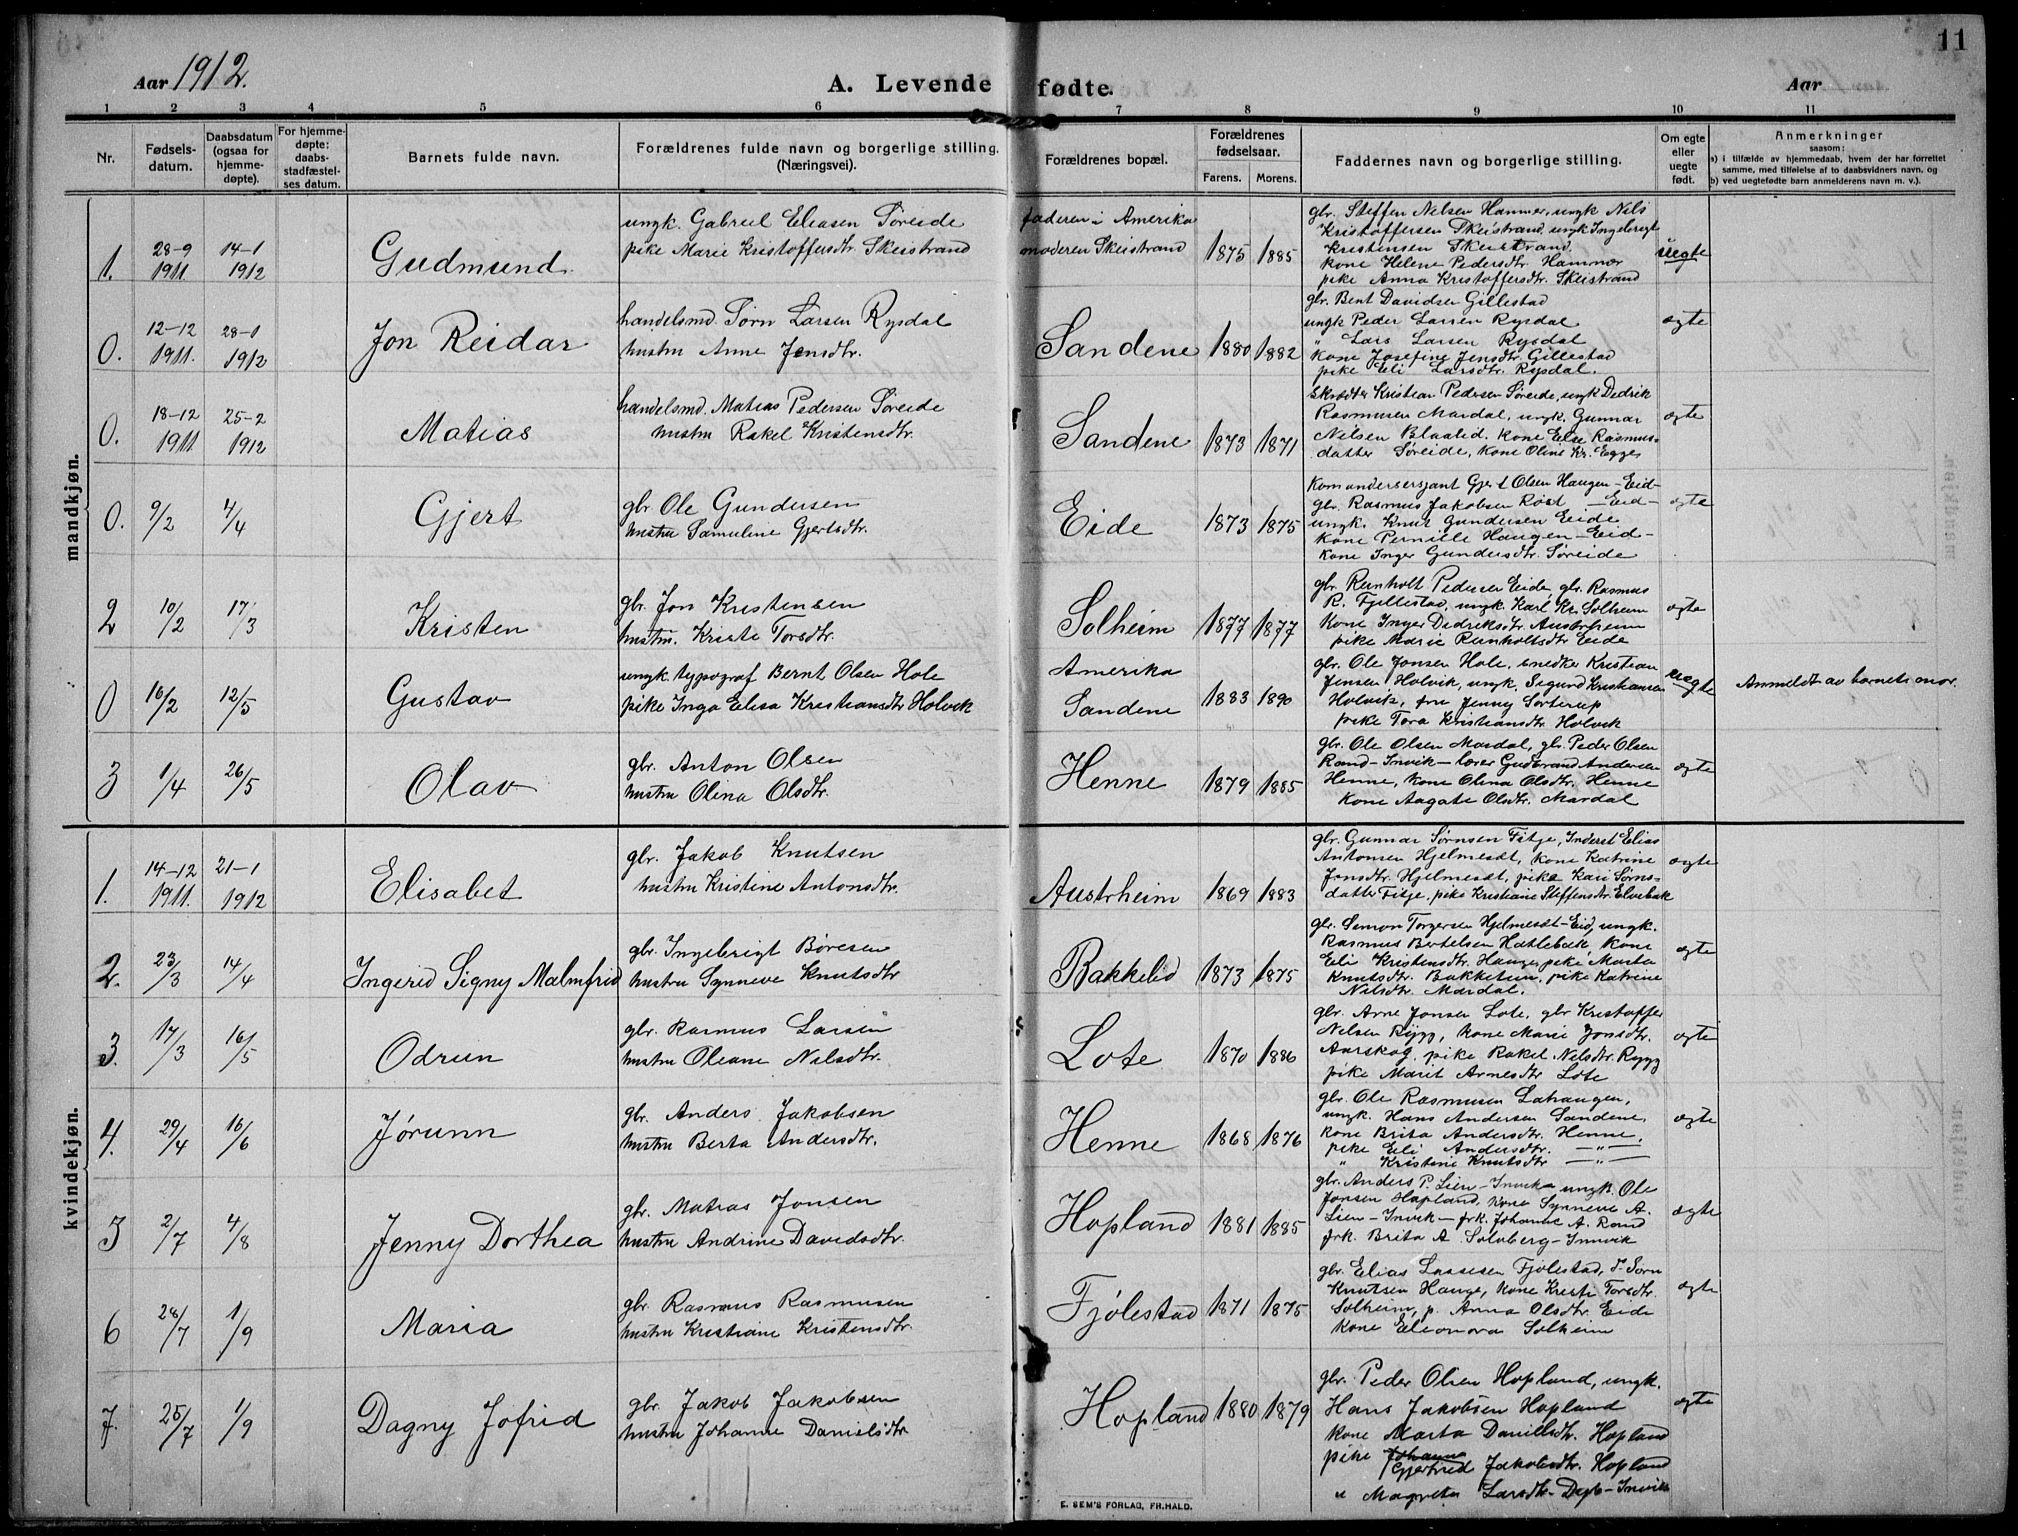 Aar 1912.
A. Levende fødte.
Aar
11
1 2 3 4 5 6 7 8 9 10 11
Nr.
Fødsels-
datum.
Daabsdatum
(ogsaa for
hjemme-
døpte).
For hjemme-
døpte:
daabs-
stadfæstel-
ses datum.
Barnets fulde navn.
Forældrenes fulde navn og borgerlige stilling.
(Næringsvei).
Forældrenes bopæl.
Forældrenes
fødselsaar.
Farens. Morens.
Faddernes navn og borgerlige stilling.
Om egte
eller
uegte
født.
Anmerkninger
saasom:
a) i tilfælde av hjemmedaab, hvem der har forrettet
samme, med tilføielse af to daabsvidners navn, og
b) ved uegtefødte barn anmelderens navn m. v.).
mandkjøn.
1.
28-9
1911.
14-1
1912
Gudmund.
ungk. Gabriel Eliasen Søreide
pike Marie Kristoffersdtr. Skeistrand
faderen i Amerika
moderen Skeistrand
1875 1885
glr. Steffen Nilsen Hammer, ungk Nils
Kristoffersen Skeistrand, ungk Ingebrigt
Kristensen Skeistrand.
kone Helene Pedersdtr. Hammer
pike Anna Kristoffersdtr. Skeistrand
uegte
0.
12-12
1911.
28-1
1912
Jon Reidar
handelsmd. Sørn Larsen Rysdal
hustru Anne Jensdtr.
Sandene
1880 1882
gbr. Bent Davidsen Gillestad
ungk Peder Larsen Rysdal
" Lars Larsen Rysdal
kone Josefine Jensdtr. Gillestad
pike Eli Larsdtr. Rysdal.
egte
0.
18-12
1911.
25-2
1912
Matias
handelsmd. Matias Pedersen Søreide
hustru Rakel Kristensdtr.
Sandene
1873 1871
Skrædder Kristian Pedersen Søreide, ungk Didrik
Rasmusen Mardal, ungk. Gunnar
Nilsen Blaalid. kone Else Rasmus-
datter Søreide, kone Oline Kr. Egge
egte
0.
9/2
4/4
Gjert
gbr Ole Gundersen
hustru Samuline Gjertsdtr.
Eide
1873 1875
Komandersersjant Gjert Olsen Haugen - Eid-
gbr. Rasmus Jakobsen Røst - Eid -
ungk. Knut Gundersen Eide
kone Pernille Haugen - Eid -
kone Inger Gundersdtr. Søreide
egte
2
10/2
17/3
Kristen
gbr. Jon Kristensen
hustru. Kristi Torsdtr.
Solheim
1877 1877
gbr. Reinholt Pedersen Eide, gbr. Rasmus
R. Fjellestad, ungk. Karl Kr. Solheim
kone Inger Didriksdtr. Austrheim
pike Marie Reinholtsdtr Eide
egte
0
16/2
12/5
Gustav
ungk. typograf Bernt Olsen Hole
pike Inga Elisa Kristiansdtr Holvik
Amerika
Sandene
1883 1890
gbr. Ole Jonsen Hole, snedker Kristian
Jensen Holvik, ungk. Sigurd Kristiansen
Holvik, fru Jenny Sorterup
pike Tora Kristiansdtr. Holvik
uegte
Anmeldt av barnets mor.
3
1/4
26/5
Olav
gbr. Anton Olsen
hustru Olina Olsdtr.
Henne
1879 1885
gbr. Ole Olsen Mardal, gbr. Peder Olsen
Rand - Invik - lærer Gudbrand Andersen
Henne, kone Olina Olsdtr. Henne
kone Aagate Olsdtr. Mardal
egte
kvindekjøn.
1.
14-12
1911.
21-1
1912
Elisabet
gbr. Jakob Knutsen
hustru Kristine Antonsdtr.
Austrheim
1869 1883
gbr. Gunnar Sørnsen Fitje, Inderst Elias
Antonsen Hjelmeset, kone Katrine
Jonsdtr. Hjelmeset, pike Kari Sørns-
datter Fitje, pike Kristiane Steffensdtr. Elvebak
egte
2.
23/3
14/4
Ingerid Signy Malmfrid
gbr. Ingebrigt Børesen
hustru Synneve Knutsdtr
Bakkelid
1873 1875
gbr. Simon Torgersen Hjelmeset - Eid, ungk.
Rasmus Bertelsen Hatlebæk, kone
Eli Kristensdtr. Hauge, pike Marta
Knutsdtr. Bakketun, pike Katrine
Nilsdtr. Mardal.
egte
3.
17/3
16/5
Odrun
gbr. Rasmus Larsen
hustru Oleane Nilsdtr.
Lote
1870 1886
gbr. Arne Jonsen Lote, gbr Kristoffer
Nilsen Rygg, kone Marie Jonsdtr.
Aarskog, pike Rakel Nilsdtr. Rygg
pike Marit Arnesdtr Lote
egte
4.
29/4
16/6
Jørunn
gbr. Anders Jakobsen
hustru Berta Andersdtr.
Henne
1868 1876
gbr. Ole Rasmusen Lahaugen,
ungk. Hans Andersen Sandene,
kone Brita Andersdtr. Henne,
pike Eli Andersdtr. — " —
" Kristine Knutsdtr — " —
egte
5
2/7
4/8
Jenny Dorthea
gbr. Matias Jonsen
hustru Andrine Davidsdtr.
Hopland
1881 1885
gbr. Anders P. Lien - Invik - ungk. Ole
Jonsen Hopland, kone Synneve A.
Lien - Invik - frk. Johanne A. Rand
frk. Brita A. Solvberg - Innvik
egte
6
28/7
1/9
Maria
gbr. Rasmus Rasmusen
hustru Kristiane Kristensdtr.
Fjølestad
1871 1875
gbr. Elias Lassesen Fjølestad, Sørn
Knutsen Hauge, kone Kristi Torsdtr.
Solheim, p. Anna Olsdtr. Eide
kone Eleonora Solheim
egte
7.
25/7
1/9
Dagny Jofrid
gbr. Jakob Jakobsen
hustru Johanne Danielsdtr
Hopland
1880 1879
gbr. Peder Olsen Hopland, ungk.
Hans Jakobsen Hopland
kone Marta Danielsdtr. Hopland
pike Johanne Gjertrud Jakobsdtr. Hopland
" Magreta Larsdtr - - Invik
egte
E. SEM'S FORLAG, FR.HALD.